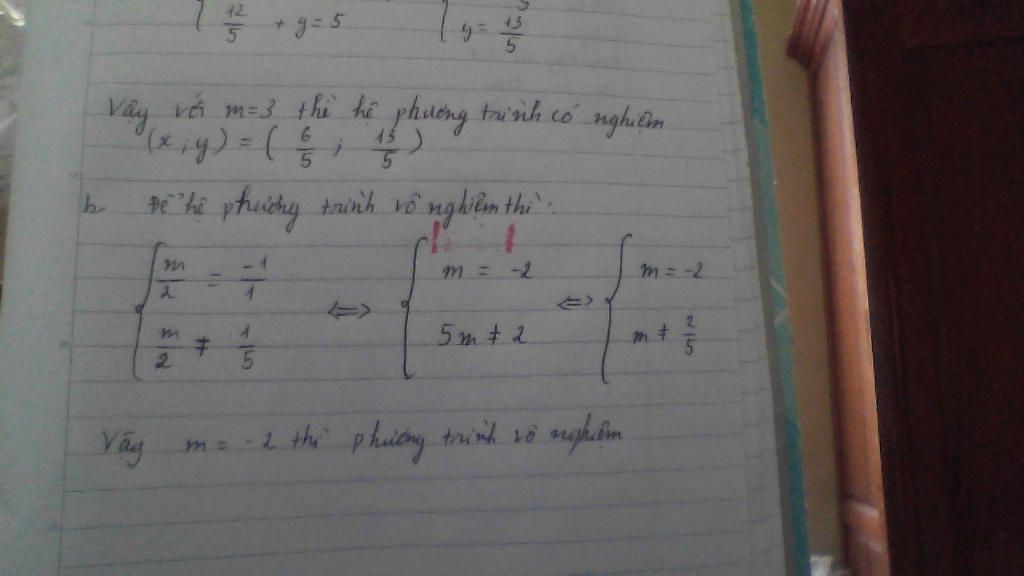 12/5 + y = 5    y = 13/5
Vậy với m = 3 thì hệ phương trình có nghiệm
(x ; y) = ( 6/5 ; 13/5 )
b. Để hệ phương trình vô nghiệm thì :
m/2 = -1/1 <=> m = -2 <=> m = -2
m/2 ≠ 1/5    5m ≠ 2    m ≠ 2/5
Vậy m = -2 thì phương trình vô nghiệm